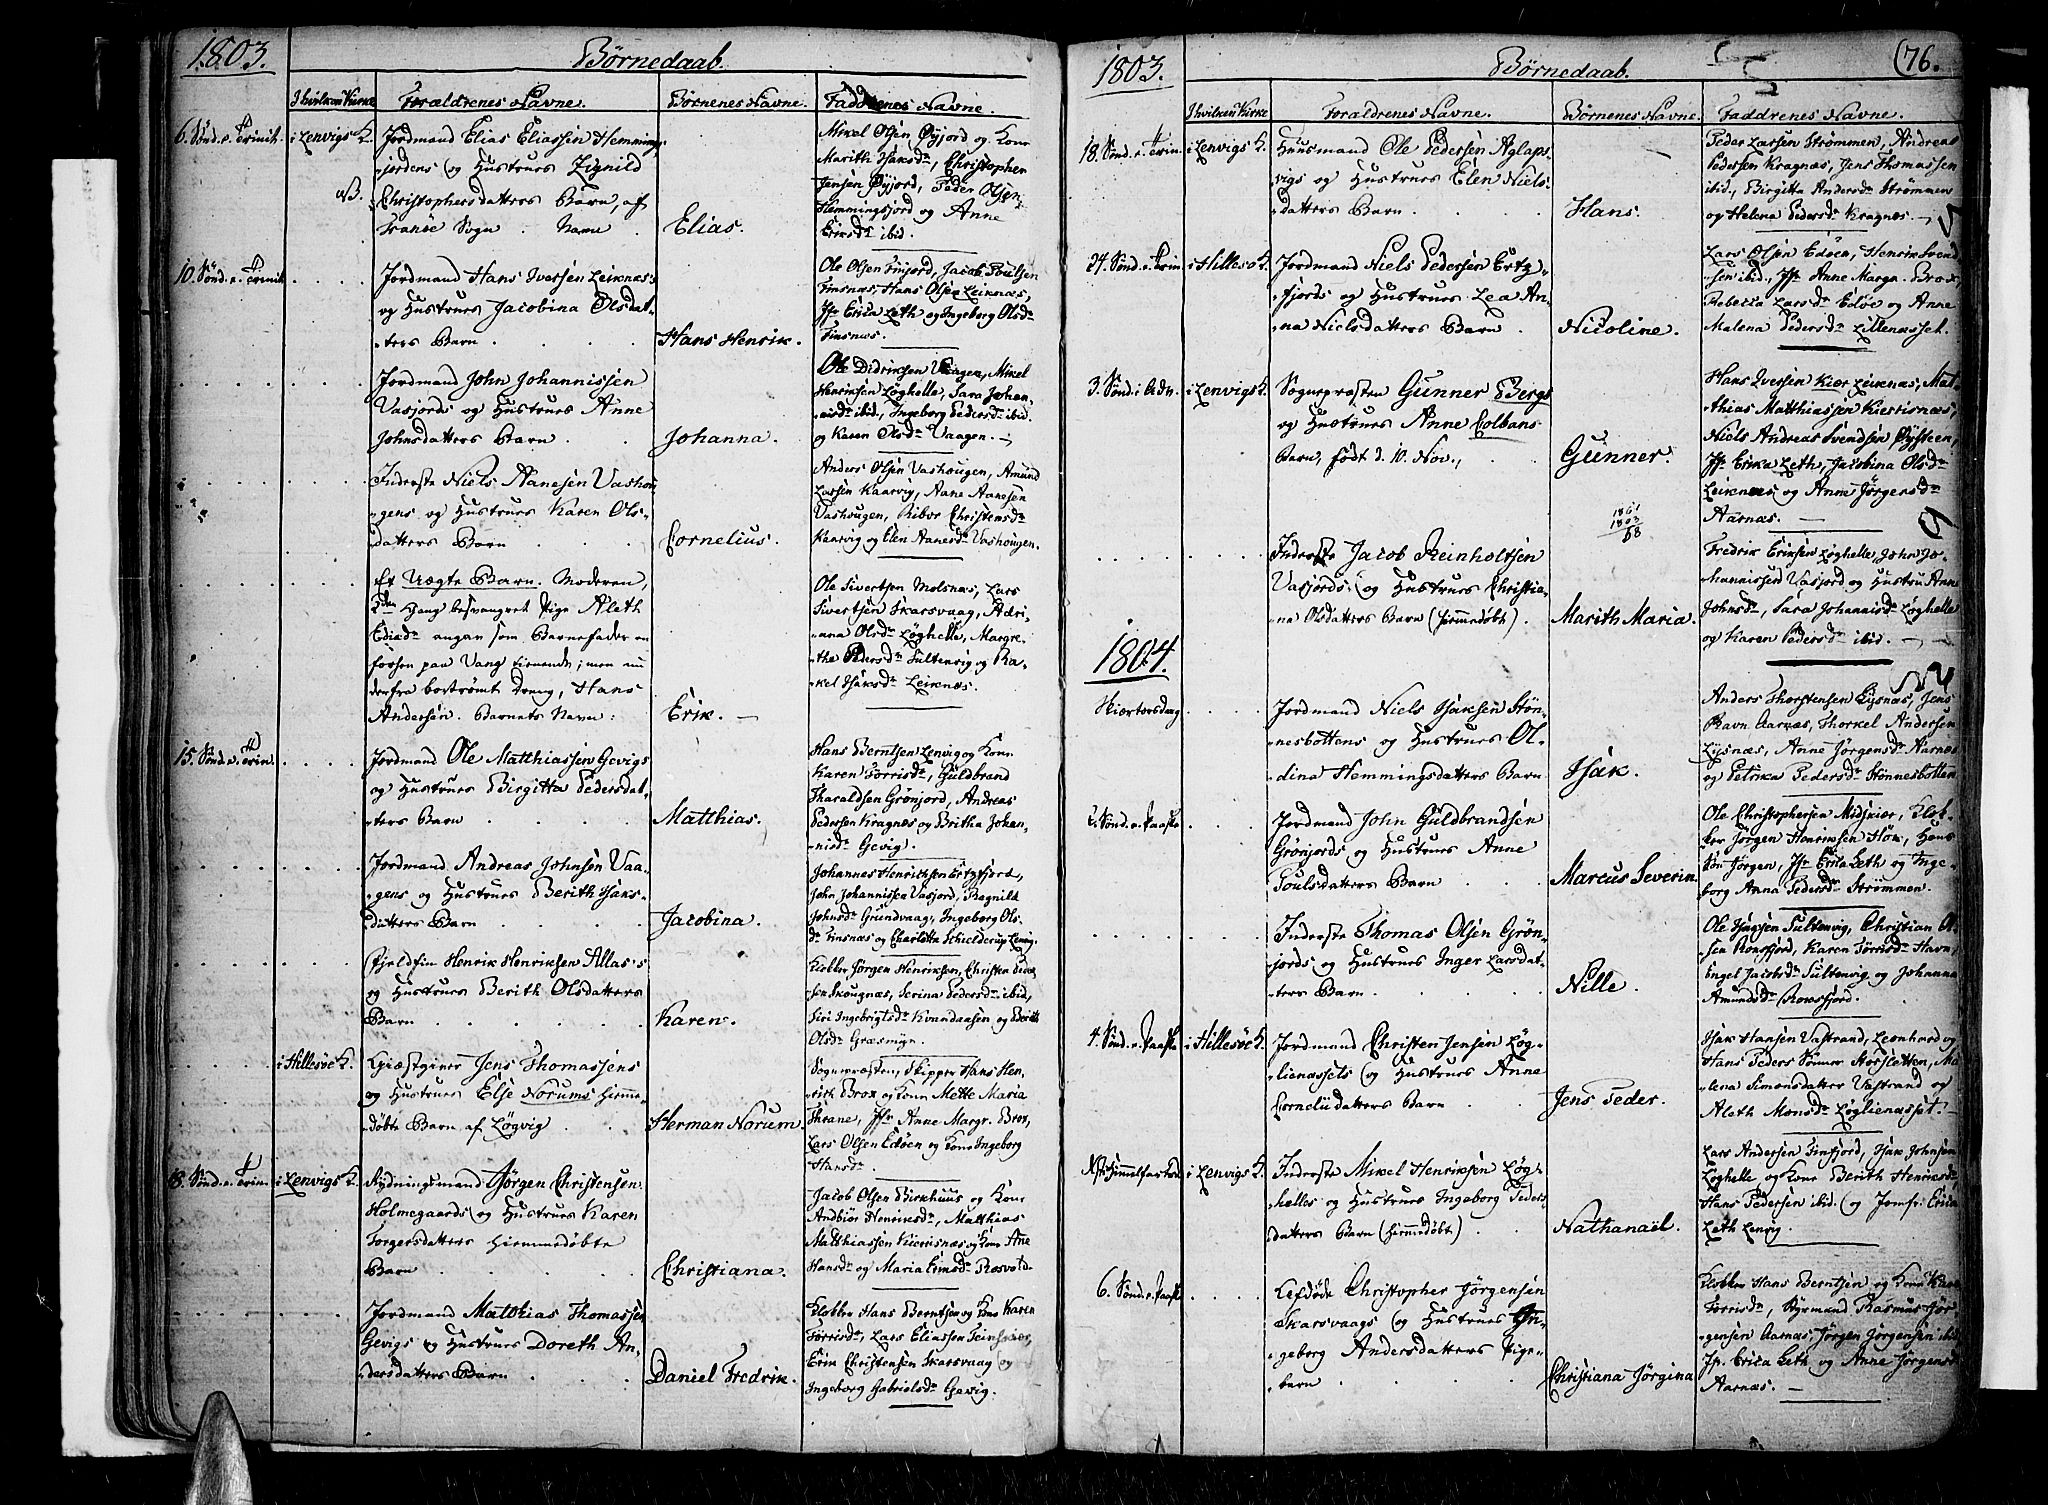 1803.
Børnedaab.
I hvilken Kirke
Forældrenes Navne.
Børnenes Navne.
Faddrenes Navne.
6. Sønd. e. Trinit.
i Lenvigs K.
Jordmand Elias Eliassen Hemming-
fjordens og Hustrues Zignild
Christophersdatters Barn, af
Tranöe Sogn. Navn
NB.
Elias.
Mikel Olsen Øyjord og Kone
Marith Isaksdr, Christopher
Jensen Øyjord, Peder Olsen
Hemmingsfjord og Anne
Eriksdr ibid.
10. Sønd. e. Trinit.
Jordmand Hans Iversen Leiknæs's
og Hustrues Jacobina Olsdat-
ters Barn
Hans Henrik.
Ole Olsen Finjord, Jacob Poulsen
Finsnæs, Hans Olsen Leiknæs,
Jfr Erica Leth og Ingeborg Olsdr
Finsnæs.
Jordmand John Johannissen
Vasjords og Hustrues Anne
Johnsdatters Barn
Johanna.
Ole Didriksen Vaagen, Mikel
Henriksen Løghelle, Sara Johan-
nisdr ibid., Ingeborg Pedersdr ibid.
og Karen Olsdr Vaagen.
Inderste Niels Aanesen Vashou-
gens og Hustrues Karen Ols-
datters Barn
Cornelius.
Anders Olsen Vashougen, Amund
Larsen Kaarvig, Aane Aanesen
Vashougen, Ribor Christensdr
Kaarvig og Elen Aanesdr Vashougen.
Et Uægte Barn. Moderen,
2den Gang besvangret Pige Aleth
Edisdr angav som Barnefader en
forhen paa Vang tienende, men nu
derfra bortrømt Dreng, Hans
Andersen. Barnets Navn:
Erik.
Ole Sivertsen Molsnæs, Lars
Sivertsen Skarsvaag, Adri-
ana Olsdr Løghelle, Margre-
the Pedersdr Sultenvig og Ra-
kel Isaksdr Leiknæs.
15. Sønd. e. Trin.
Jordmand Ole Matthiassen Gevigs
og Hustrues Birgitta Pedersdat-
ters Barn
Matthias.
Hans Berntsen Lenvig og Kone
Karen Torrisdr, Guldbrand
Tharaldsen Grönjord, Andreas
Pedersen Kragnæs og Britha Johan-
nisdr Gevig.
Jordmand Andreas Johnsen Vaa-
gens og Hustrues Berith Isaks-
datters Barn
Jacobina.
Johannes Henriksen Ertzfjord,
John Johannissen Vasjord, Ragnild
Johnsdr Grundvaag, Ingeborg Ols-
dr Finsnæs og Charlotta Schielderup Lenvig.
Fjeldfin Henrik Henriksen Allas's
og Hustrues Berith Olsdatters
Barn
Karen.
Klokker Jörgen Henriksen, Christen Peder-
sen Skougnæs, Serina Pedersdr ibid,
Siri Ingebrigtsdr Kvandaasen og Berith
Olsdr Græsmyr.
i Hillesöe K.
Giæstgiver Jens Thomassens
og Hustrues Else Norums Hiemme-
døbte Barn af Løgvig
Herman Norum.
Sognepræsten, Skipper Hans Hen-
rik Brox og Kone Mette Maria
Thrane, Jfr Anne Margr. Brox,
Lars Olsen Edöen og Kone Ingeborg
Hansdr.
18. Sønd. e. Trin.
i Lenvigs K.
Rydningsmand Jørgen Christensen
Holmegaards og Hustrues Karen
Torgersdatters hiemmedøbte
Barn
Christiana.
Jacob Olsen Birkhuus og Kone
Andbiør Henriksdr, Matthias
Matthiassen Kierrisnæs og Kone Ane
Hansdr og Maria Eriksdr Rosvold.
Jordmand Matthias Thomassen
Gevigs og Hustrues Doreth An-
dersdatters Barn
Daniel Fredrik.
Klokker Hans Berntsen og Kone Karen
Torrisdr, Lars Eliassen
Erik Christensen Skarsvaag og
Ingeborg Gabrielsdr Gevig.
1803.
Børnedaab.
(76.
I hvilken Kirke
Forældrenes Navne.
Børnenes Navne.
Faddrenes Navne.
18. Sønd. e. Trin.
i Lenvigs K.
Huusmand Ole Pedersen Aglaps-
vigs og Hustrues Elen Niels-
datters Barn.
Hans.
Peder Larsen Strømmen, Andreas
Pedersen Kragnæs, Jens Thomassen
ibid, Birgitta Andersdr Strømmen
og Helena Pedersdr Kragnæs.
24. Sønd. e. Trin.
i Hillesö K.
Jordmand Niels Pedersen Ertz-
fjords og Hustrues Lea An-
na Nielsdatters Barn
Nicoline.
Lars Olsen Edöen, Henrik Svend-
sen ibid., Jfr Anne Margr. Brox,
Rebecca Larsdr Edöe og Anne
Malena Pedersdr Lillenæsset.
3. Sønd. i Adv.
i Lenvigs K.
Sognepræsten Gunner Bergs
og Hustrues Anne Colbans
Barn, født d. 10. Nov.,
Gunner.
1861
1803
58
Hans Iversen Kiær Leiknæs, Mat-
thias Matthiassen Kierrisnæs,
Niels Andreas Svendsen Øysteen,
Jfr Erika Leth, Jacobina Olsdr
Leiknæs og Anne Jørgensdr
Aarnæs.
Inderste Jacob Reinholtsen
Vasjords og Hustrues Christia-
na Olsdatters Barn (hiemmedøbt).
Marith Maria.
Fredrik Eriksen Løghelle, John Jo-
hannissen Vasjord og Hustru Anne
Johnsdr, Sara Johannisdr Løghelle
og Karen Pedersdr ibid.
1804.
Skiærtorsdag
Jordmand Niels Isaksen Støn-
nesbottens og Hustrues Ol-
dina Hemmingsdatters Barn
Isak.
Anders Thorstensen Lysnæs, Jens
Ravn Aarnæs, Thorkel Andersen
Lysnæs, Anne Jørgensdr Aarnæs
og Petrika Pedersdr Stønnesbotten
2. Sønd. e. Paaske
Jordmand John Guldbrandsen
Grönjords og Hustrues Anne
Poulsdatters Barn
Marcus Severin.
Ole Christophersen Midskiær, Klok-
ker Jørgen Henriksen Höx, Hans
Søn Jørgen, Jfr Erica Leth og Inge-
borg Anna Pedersdr Strømmen.
Inderste Thomas Olsen Grön-
jords og Hustrues Inger Larsdat-
ters Barn.
Nille.
Ole Isaksen Sultenvig, Christian Ol-
sen Rossfjord, Karen Torrisdr Havn,
Engel Jacobsdr Sultenvig og Johanna
Amundsdr Rossfjord.
4. Sønd. e. Paaske
i Hillesöe K.
Jordmand Christen Jensen Løg-
lienæssets og Hustrues Anne
Corneliidatters Barn
Jens Peder.
Isak Hansen Vastrand, Leonhard og
Hans Peders Sønner Storsletten, Ma-
lena Simonsdatter Vastrand og
Aleth Monsdr Løglienæsset.
Xsti Himmelfartsd.
i Lenvigs K.
Inderste Mikel Henriksen Løg-
helles og Hustrues Ingeborg Peders-
datters Barn (hiemmedøbt)
Nathanaël.
Lars Andersen Finfjord, Isak Johnsen
Løghelle og Kone Berith Henriksdr
Hans Pedersen ibid. og Jomfr. Erica
Leth Lenvig.
6. Sønd. e. Paaske
Afdøde Christopher Jørgensen
Skarsvaags og Hustrues In-
geborg Andersdatters Pige-
barn
Christiana Jörgina
Klokker Hans Berntsen og Kone Karen
Torrisdr, Styrmand Rasmus Jør-
gensen Aarnæs, Jørgen Jørgensen ibid
Jfr. Erica Leth og Anne Jørgensdr
Aarnæs.